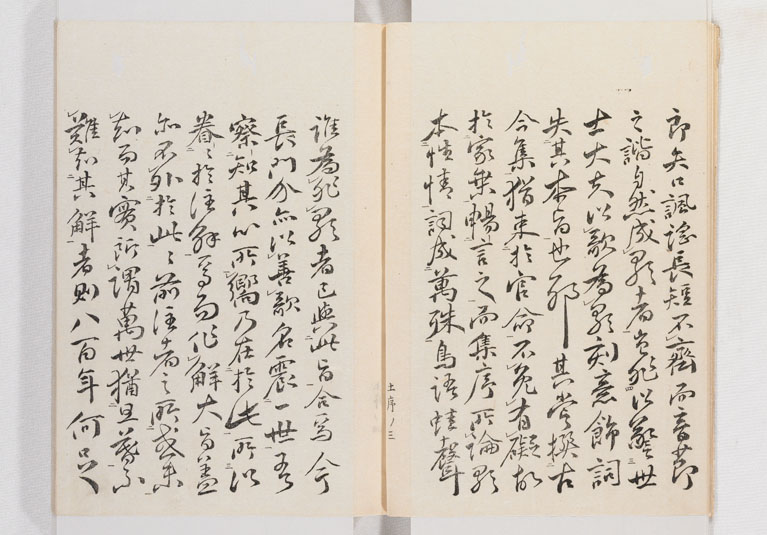 郎矢口諷謠長短不齊而音節
之諧自然成歌者豈非以警世
士大夫以歌為歌刻意飾詞
失其本旨世耶其嘗撰古
今集猶束於官命不免有礙故
於家集暢言之而集序所論歌
本性情詞成萬殊鳥語蛙聲
土序ノ三
誰為非歌者已與此旨合焉今
長門介亦以善歌名震一世吾
察知其心所嚮乃在於此所以
眷々於注解焉而作解大旨蓋
亦不外於此々前注者之所未
知而其實所謂萬世猶旦暮不
難知其解者則八百年何足